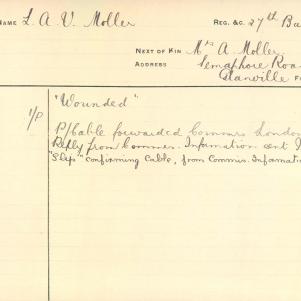 NAME L. A. V. Moller REG. &C. 27th Ba
NEXT OF KIN Mrs A. Moller.
ADDRESS Semaphore Roa
Glanville
"Wounded"
P/Cable forwarded Commrs London
Reply from Commrs. Information sent
"Slip" confirming Cable, from Commis. Informatio